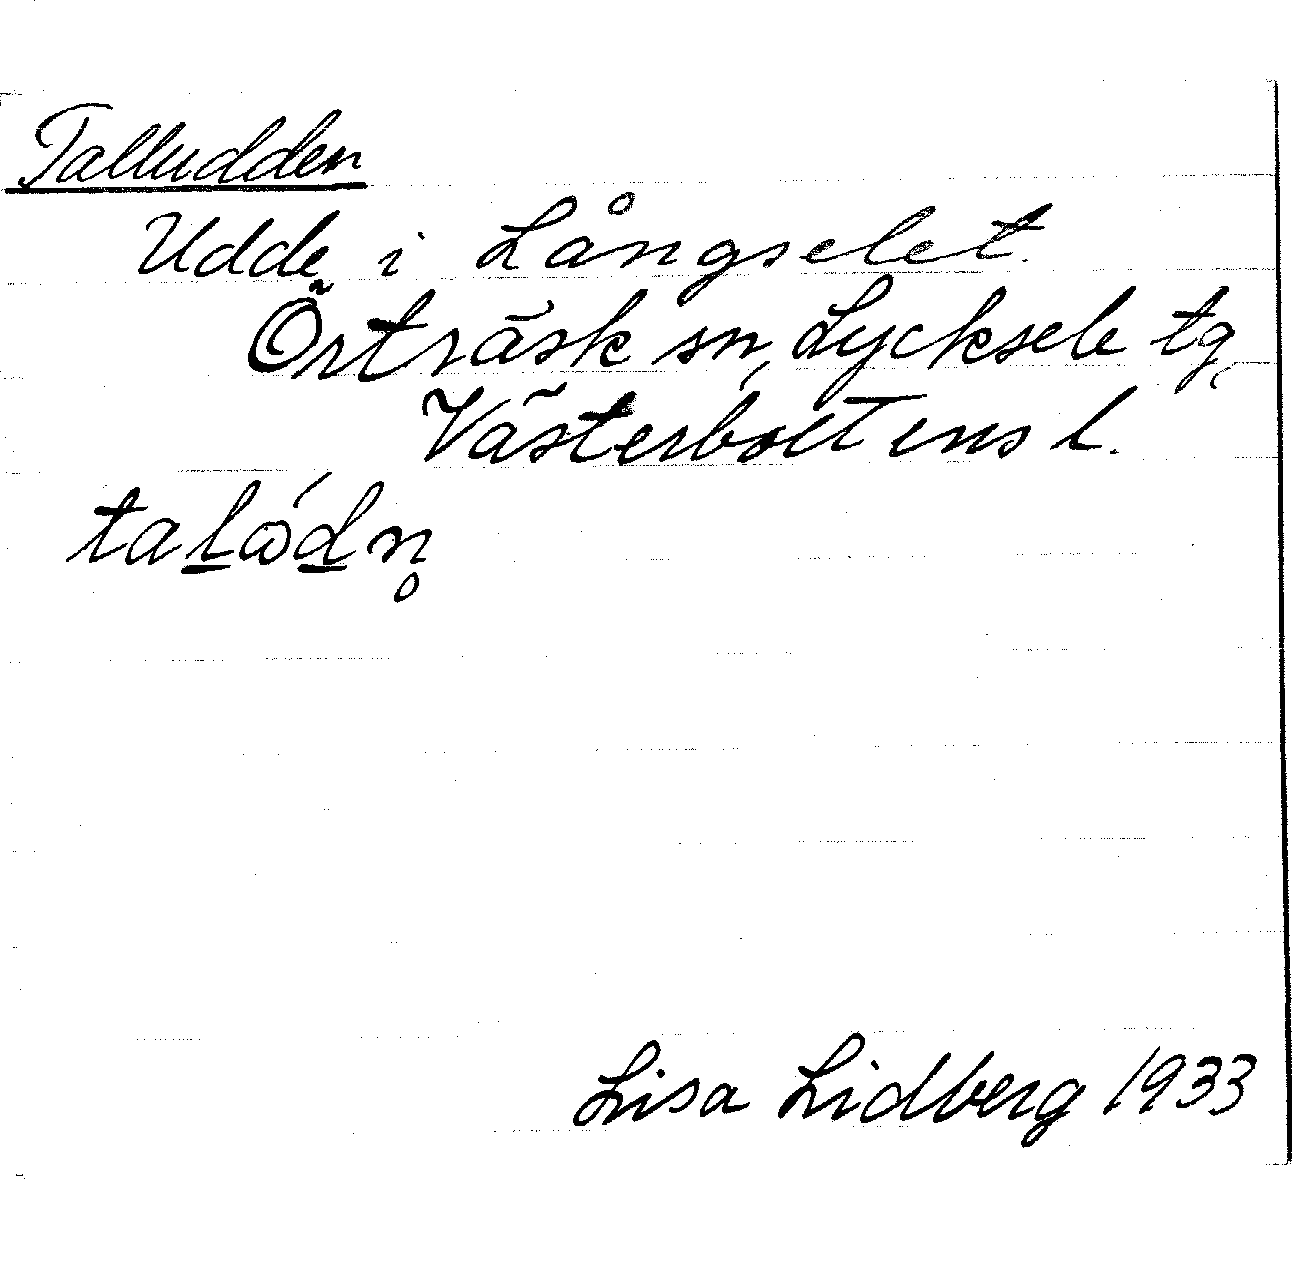 Talludden
Udde i Långselet.
Örträsk sn, Lycksele tg,
Västerbottens l.
talώdn̥
Lisa Lidberg 1933